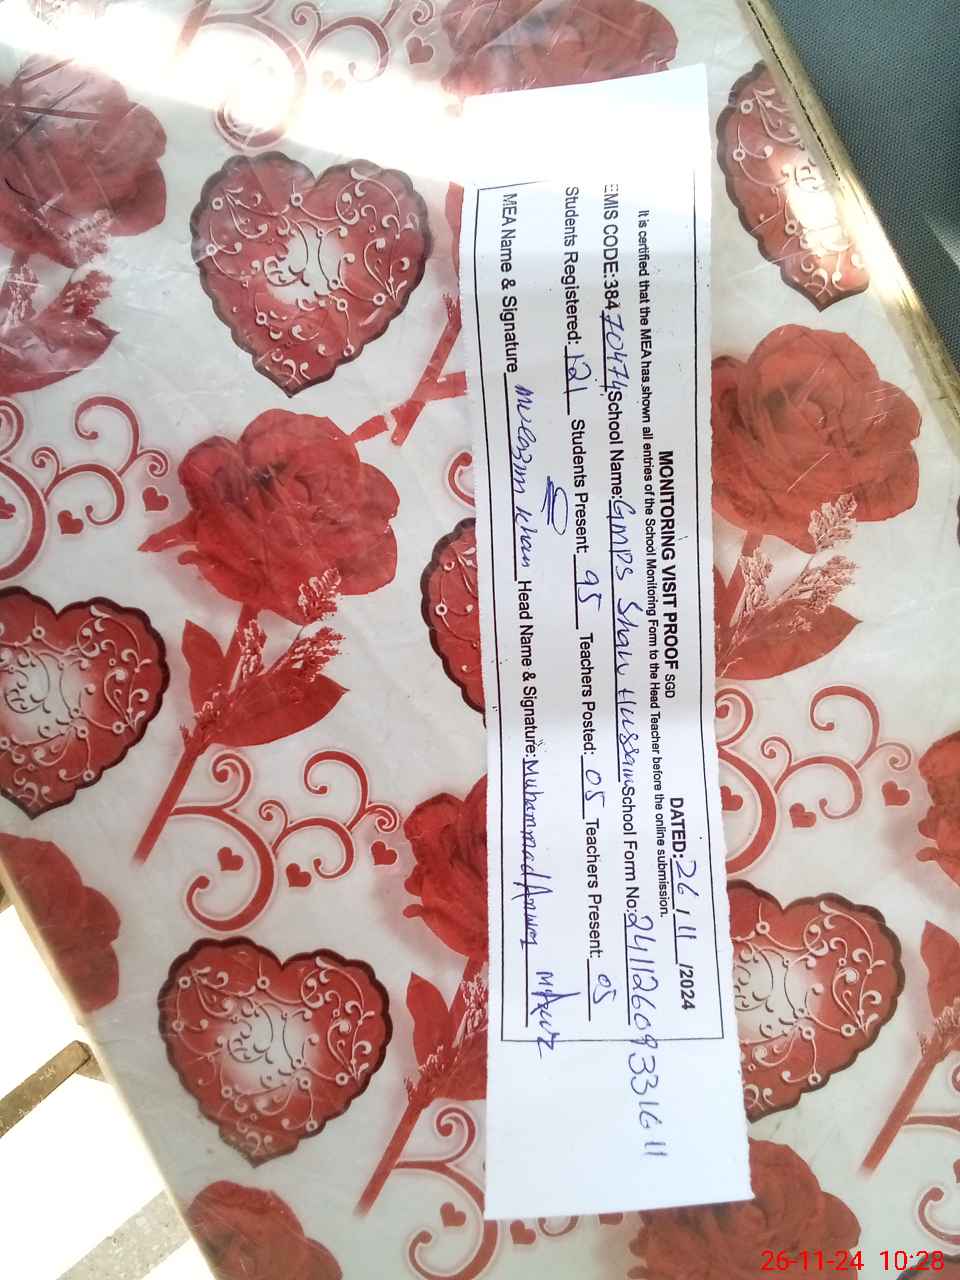 MONITORING VISIT PROOF SGD DATED: 26/11/2024
It is certified that the MEA has shown all entries of the School Monitoring Form to the Head Teacher before the online submission.
EMIS CODE:38470474 School Name: GMPS Shah Hussain School Form No: 24112609331611
Students Registered: 121 Students Present: 95 Teachers Posted: 05 Teachers Present: 05
MEA Name & Signature Mulazim Khan Head Name & Signature: Muhammad Anwar
26-11-24 10:28